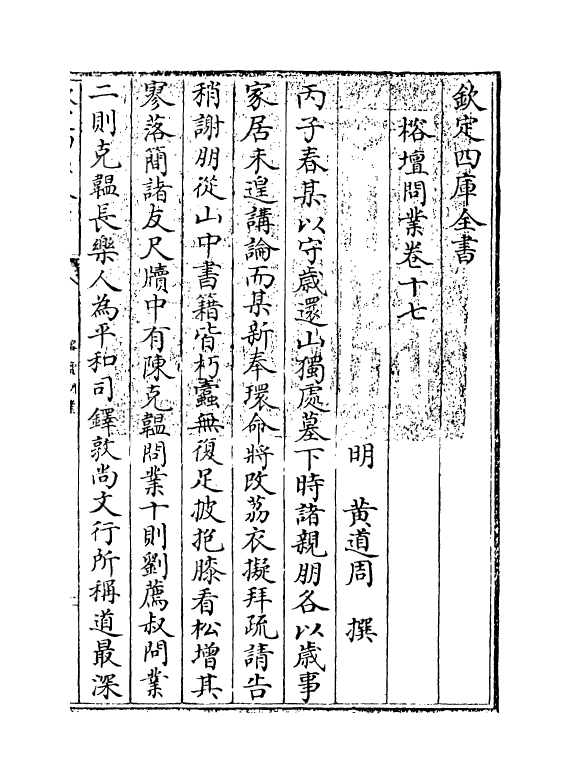 欽定四庫全書
榕壇問業卷十七
明　黃道周　撰
丙子春某以守歲還山獨處墓下時諸親朋各以歲事
家居未遑講論而某新奉環命將改荔衣擬拜疏請告
稍謝朋從山中書籍皆朽蠹無復足披抱膝看松增其
寥落簡諸友尺牘中有陳克韞問業十則劉薦叔問業
二則克韞長樂人為平和司鐸敦尚文行所稱道最深